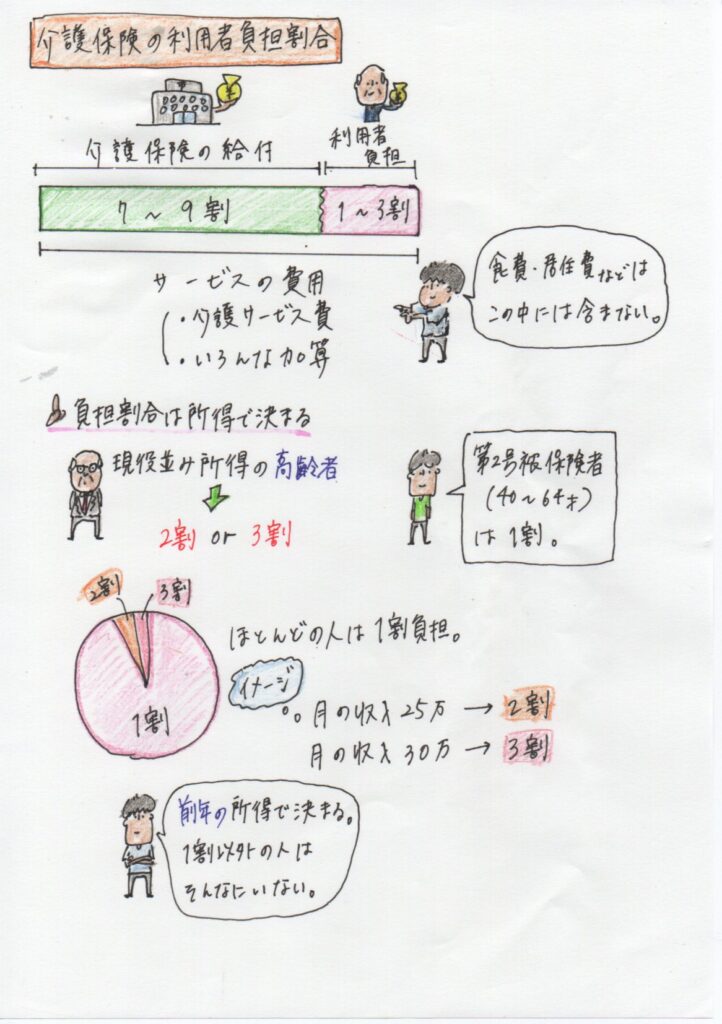 介護保険の利用者負担割合
¥
¥
介護保険の給付
利用者
負担
7～9割
1～3割
サービスの費用
・介護サービス費
・いろんな加算
食費・居住費などは
この中には含まない。
負担割合は所得で決まる
現役並み所得の高齢者
2割 or 3割
第2号被保険者
(40～64才)
は1割。
2割
3割
1割
ほとんどの人は1割負担。
イメージ
月の収入25万→2割
月の収入30万→3割
前年の所得で決まる。
1割以外の人は
そんなにいない。